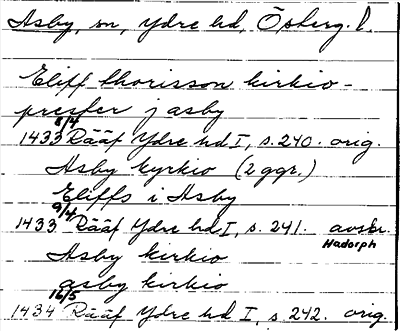 Asby, sn, Ydre hd, Östberg. l.
Eliff thorisson kirkio-
prester j asby
1433 8/4 Rääf Ydre hd I, s. 240. orig.
Asby kyrkio (2 ggr.)
Eliffs i Asby
1433 9/4 Rääf Ydre hd I, s. 241. avskr. Hadorph
Asby kirkio
asby kirkio
1434 16/5 Rääf Ydre hd I, s. 242. orig.